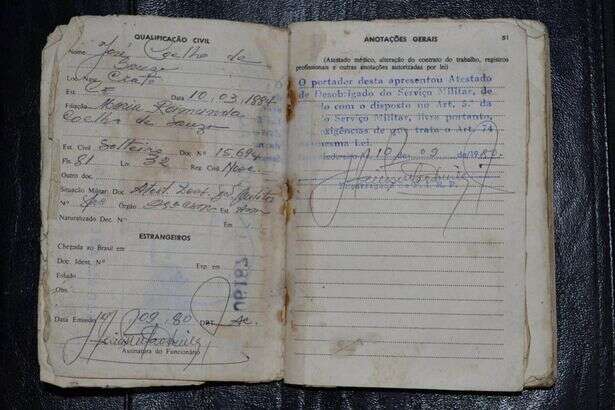 QUALIFICAÇÃO CIVIL
Nome José Coelho de
Souza
Loc. Nasc. Crato
Est. Data 10.03.1884
Filiação Maria Fernanda
Coelho de Souza
Est. Civil Solteiro Doc. Nº 15.694
Fls. 81 Liv. 32 Reg. Civil
Outro doc.
Situação Militar: Doc.
Nº Órgão Est.
Naturalizado Dec. Nº Em
ESTRANGEIROS
Chegada ao Brasil em
Doc. Ident. Nº Exp. em
Estado
Obs.
Data Emissão 10/ 09.80 DRT Ac.
Assinatura do Funcionário
06187
ANOTAÇÕES GERAIS 51
(Atestado médico, alteração do contrato do trabalho, registros
profissionais e outras anotações autorizadas por lei)
O portador desta apresentou Atestado
de Desobrigado do Serviço Militar, de
do com o disposto no Art. 5.º da
o Serviço Militar, livre portanto,
exigências de que trata o Art. 74
mesma Lei.
10 de 09 de 1980